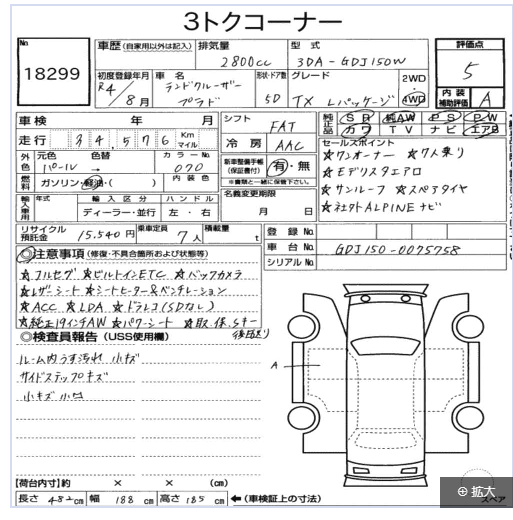 3トクコーナー
No.
18299
車歴 (自家用以外は記入) 排気量 2800cc 型式 3DA-GDJ150W
評価点
5
内装補助評価 A
初度登録年月 R4/8月 車名 ランドクルーザープラド 形状・ドア数 5D グレード TX Lパッケージ 2WD・4WD
車検 年 月
走行 34,576 Km マイル
シフト FAT
冷房 AAC
純正品 SR 純AW PS PW
カワ TV ナビ エアB
外色 元色 パール 色替 → カラーNo. 070
燃料 ガソリン・軽油・( ) 内装色
新車整備手帳(保証書付) 有・無
※書類と一緒に保管下さい。
輸入車用 年式 輸入区分 ディーラー・並行 ハンドル 左・右
名義変更期限 月 日
セールスポイント
☆ワンオーナー ☆7人乗り
☆モデリスタエアロ
☆サンルーフ ☆スペアタイヤ
☆社外ALPINEナビ
リサイクル預託金 15,540円 乗車定員 7人 積載量 t
登録No.
車台No. GDJ150-0075758
シリアルNo.
◎注意事項 (修復・不具合箇所および状態等)
☆フルセグ ☆ビルトインETC ☆バックカメラ
☆レザーシート ☆シートヒーター&ベンチレーション
☆ACC ☆LDA ☆ドラレコ(SDなし)
☆純正19インチAW ☆パワーシート ☆取・保・Sキー
後日送り
◎検査員報告 (USS使用欄)
ルーム内うす汚れ 小キズ
サイドステップキズ
小キズ 小凹
A
【荷台内寸】約 × × (cm)
長さ 482cm 幅 188cm 高さ 185cm ←(車検証上の寸法)
スペア
拡大